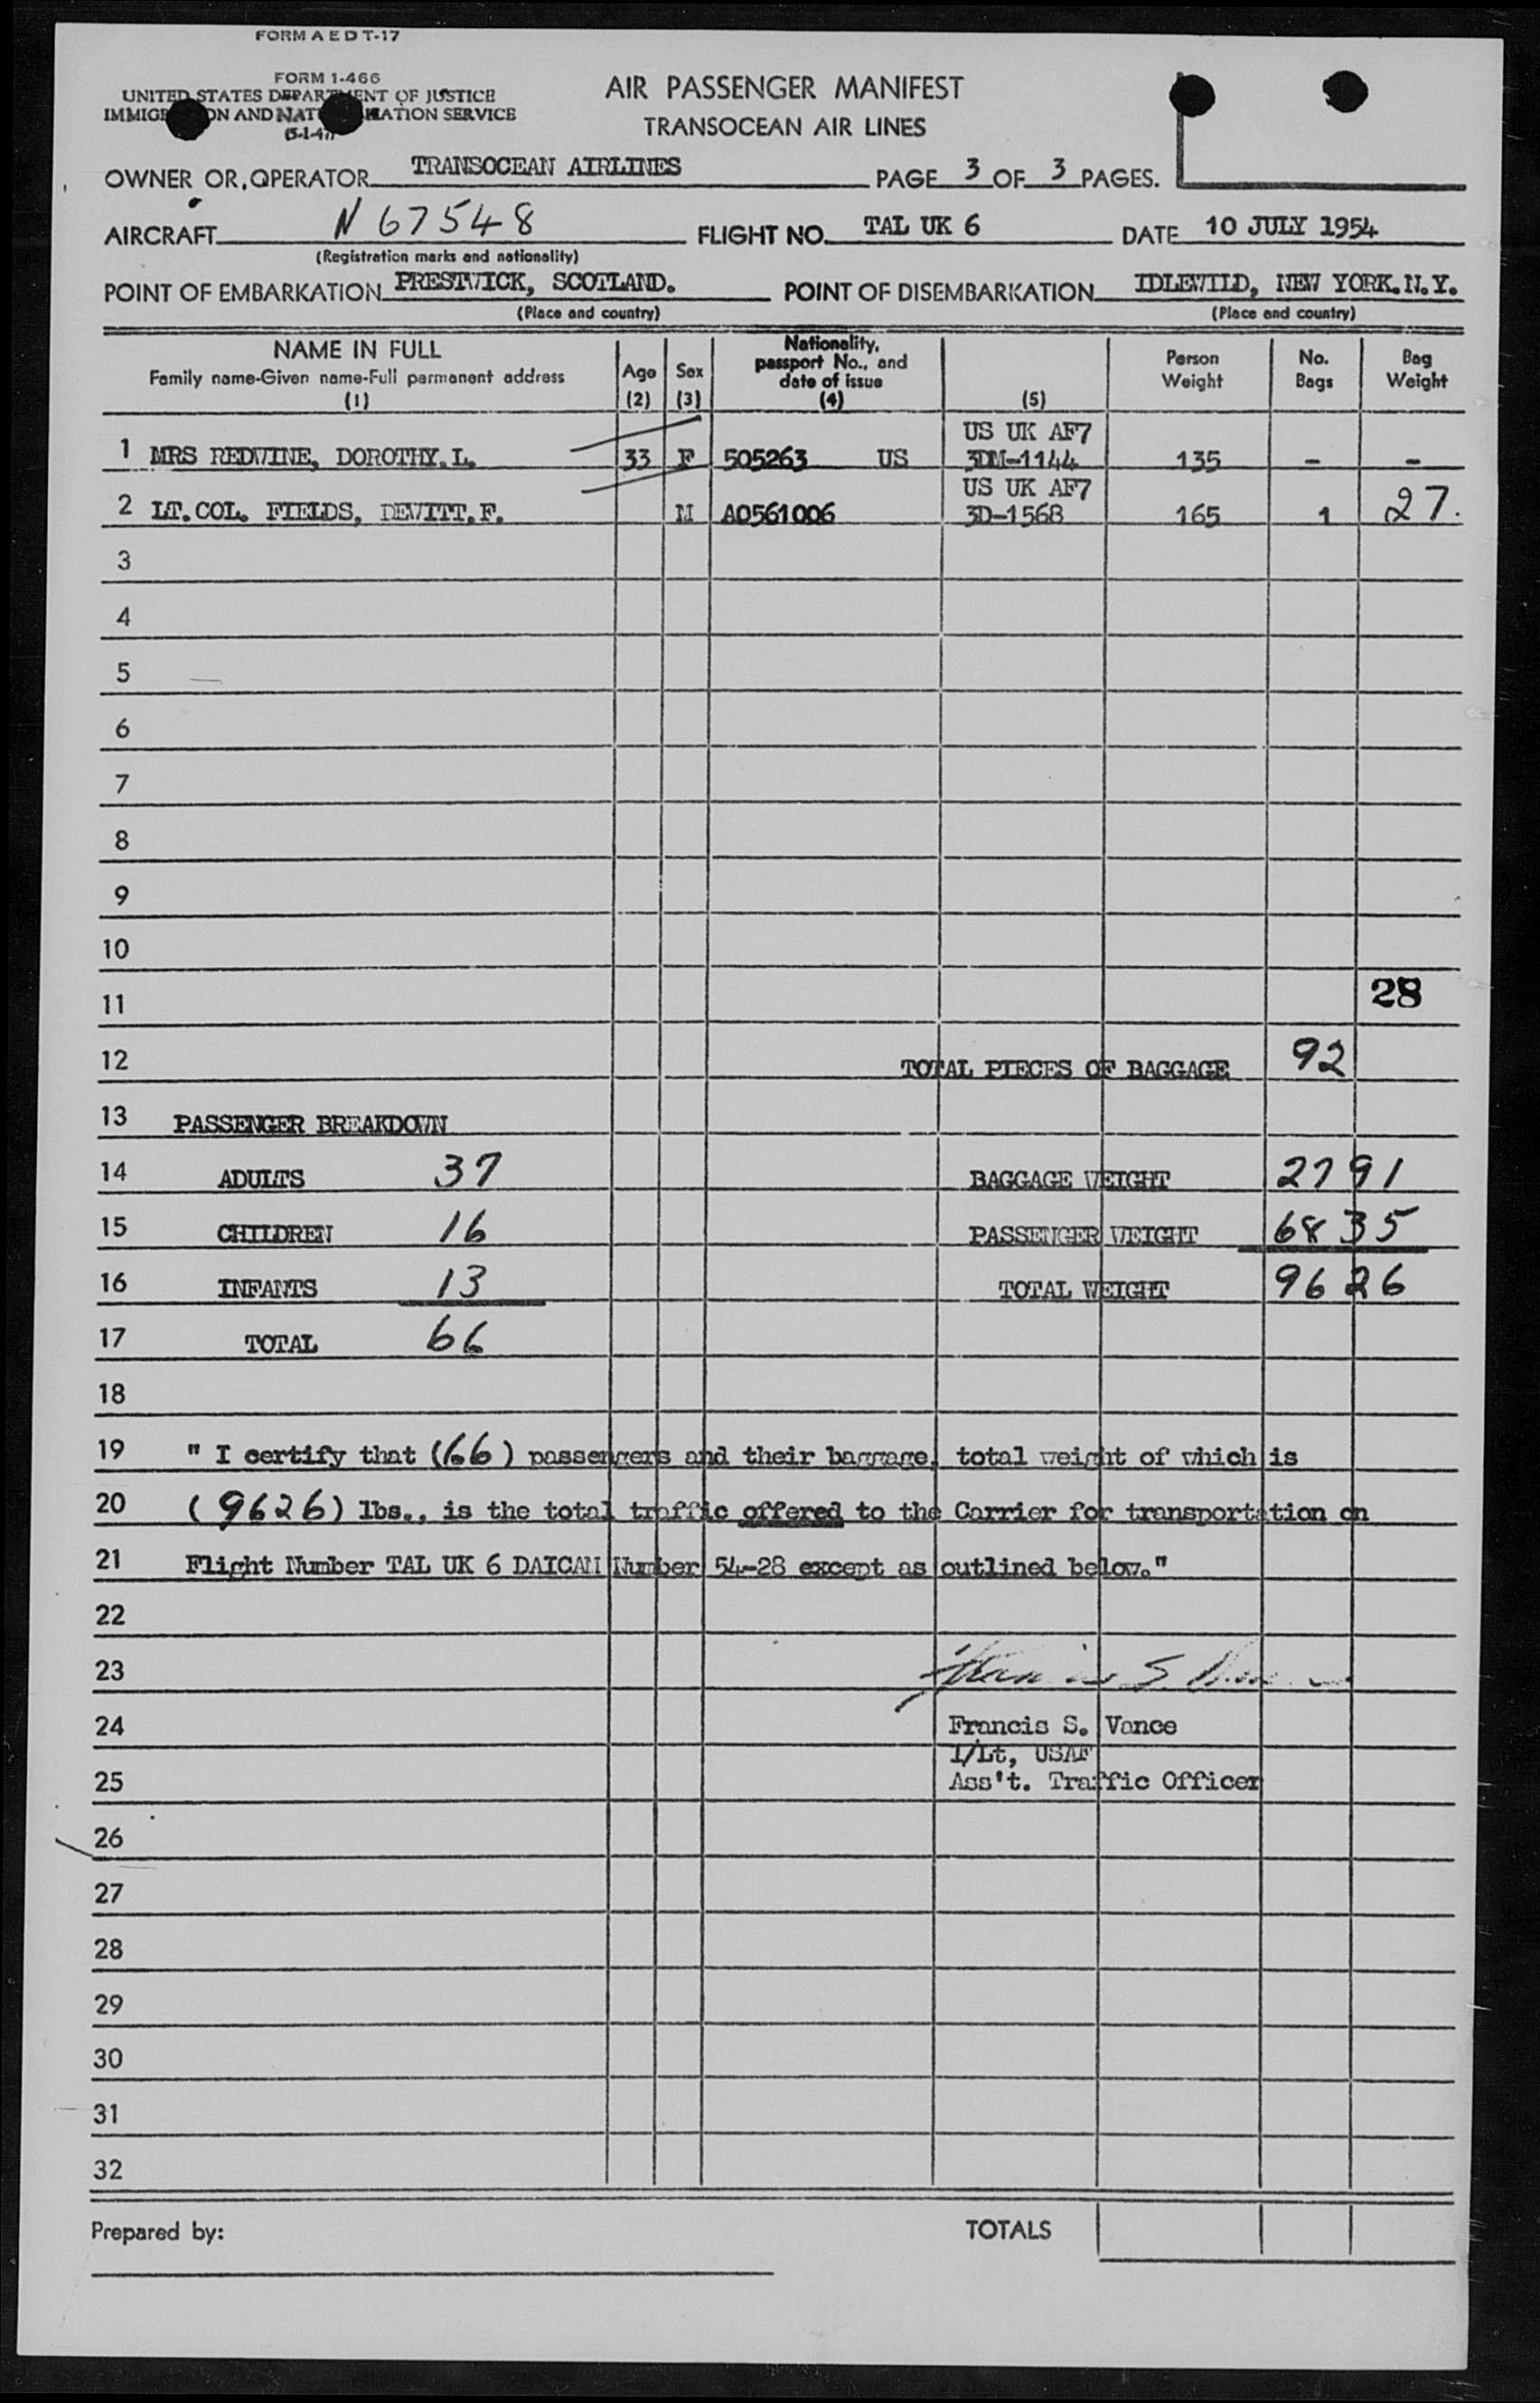 FORM A E D T-17
FORM 1-466
UNITED STATES DEPARTMENT OF JUSTICE
IMMIGRATION AND NATURALIZATION SERVICE
(5-1-47)
AIR PASSENGER MANIFEST
TRANSOCEAN AIR LINES
OWNER OR OPERATOR TRANSOCEAN AIRLINES PAGE 3 OF 3 PAGES.
AIRCRAFT N 67548 FLIGHT NO. TAL UK 6 DATE 10 JULY 1954
(Registration marks and nationality)
POINT OF EMBARKATION PRESTWICK, SCOTLAND. POINT OF DISEMBARKATION IDLEWILD, NEW YORK.N.Y.
(Place and country) (Place and country)
NAME IN FULL Family name-Given name-Full permanent address (1) Age (2) Sex (3) Nationality, passport No., and date of issue (4) (5) Person Weight No. Bags Bag Weight
US UK AF7
1 MRS REDWINE, DOROTHY.L. 33 F 505263 US 3DM-1144 135 - -
US UK AF7
2 LT.COL. FIELDS, DEWITT.F. M AO561006 3D-1568 165 1 27.
3
4
5
6
7
8
9
10
11 28
12 TOTAL PIECES OF BAGGAGE 92
13 PASSENGER BREAKDOWN
14 ADULTS 37 BAGGAGE WEIGHT 2791
15 CHILDREN 16 PASSENGER WEIGHT 6835
16 INFANTS 13 TOTAL WEIGHT 9626
17 TOTAL 66
18
19 " I certify that (66) passengers and their baggage, total weight of which is
20 (9626) lbs., is the total traffic offered to the Carrier for transportation on
21 Flight Number TAL UK 6 DAICAN Number 54-28 except as outlined below."
22
23 Francis S. Vance
24 Francis S. Vance
1/Lt, USAF
25 Ass't. Traffic Officer
26
27
28
29
30
31
32
Prepared by: TOTALS